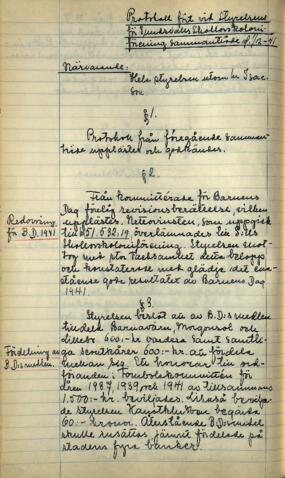 Protokoll fört vid Styrelsens
för Sundsvalls Skollovskoloni-
förening sammanträde d. 9/12-41
Närvarande:
Hela styrelsen utom hr Isac-
son
§1.
Protokoll från föregående samman-
träde upplästes och godkändes.
§2.
Från kommitterade för Barnens
Dag förelåg revisionsberättelse, vilken
upplästes. Nettovinsten, som uppgick
till kr 51.532:19 överlämnades till S:lls
Skollovskoloniförening. Styrelsen
mot stor tacksamhet detta belopp
och konstaterade med glädje det
enastående goda resultatet av Barnens Dag
1941.
Redovisning
för B.D. 1941
§3.
Styrelsen beslöt att av B.D:s medlen
tilldela Barnavärn Morgonsol och
600:- kr vardera samt
600:- kr. att fördela
mellan sig. Ett honorar till ord-
föranden i kommittén för
åren 1937, 1939 och 1941 av tillsammans
1.500:- kr beviljades. Likaså bevilja-
de styrelsen begärda
60:- kronor. Återstående B.D:s medel
skulle insättas jämnt fördelade på
stadens fyra banker.
Fördelning av
B.D:s medlen.